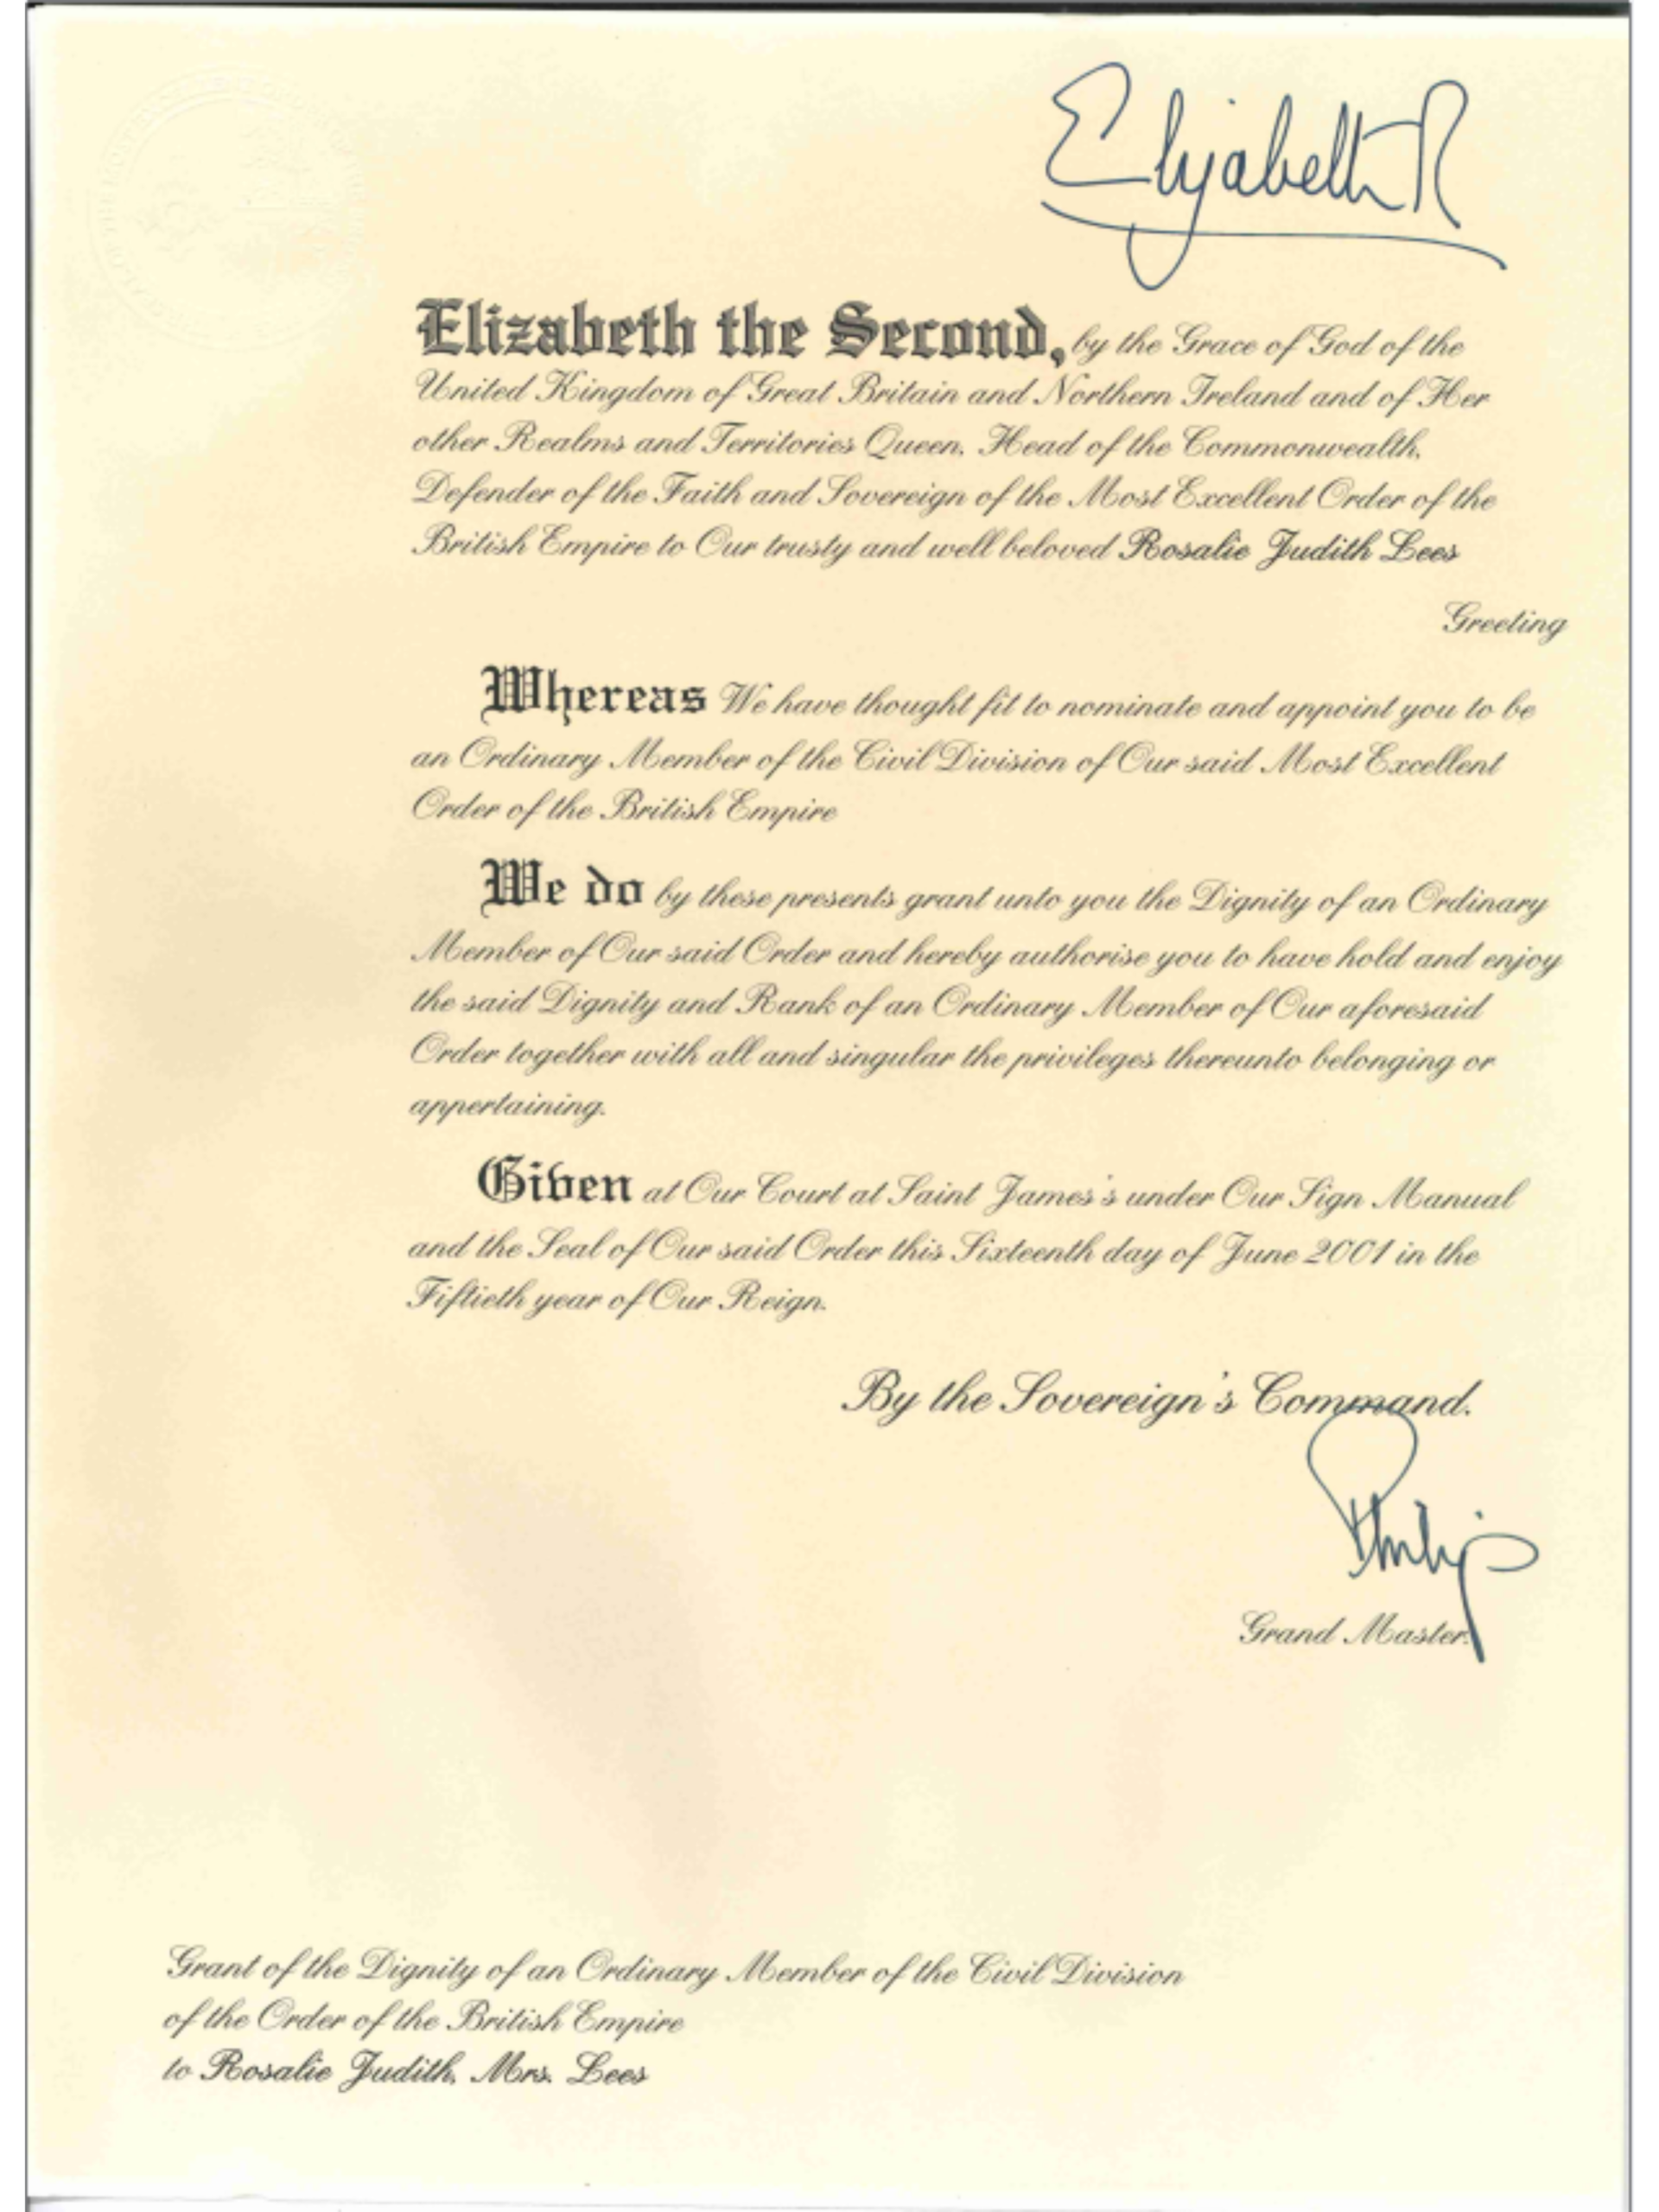 Elizabeth R
Elizabeth the Second, by the Grace of God of the
United Kingdom of Great Britain and Northern Ireland and of Her
other Realms and Territories Queen, Head of the Commonwealth,
Defender of the Faith and Sovereign of the Most Excellent Order of the
British Empire to Our trusty and well beloved Rosalie Judith Lees
Greeting
Whereas We have thought fit to nominate and appoint you to be
an Ordinary Member of the Civil Division of Our said Most Excellent
Order of the British Empire
We do by these presents grant unto you the Dignity of an Ordinary
Member of Our said Order and hereby authorise you to have hold and enjoy
the said Dignity and Rank of an Ordinary Member of Our aforesaid
Order together with all and singular the privileges thereunto belonging or
appertaining.
Given at Our Court at Saint James's under Our Sign Manual
and the Seal of Our said Order this Sixteenth day of June 2001 in the
Fiftieth year of Our Reign.
By the Sovereign's Command.
Philip
Grand Master.
Grant of the Dignity of an Ordinary Member of the Civil Division
of the Order of the British Empire
to Rosalie Judith, Mrs. Lees